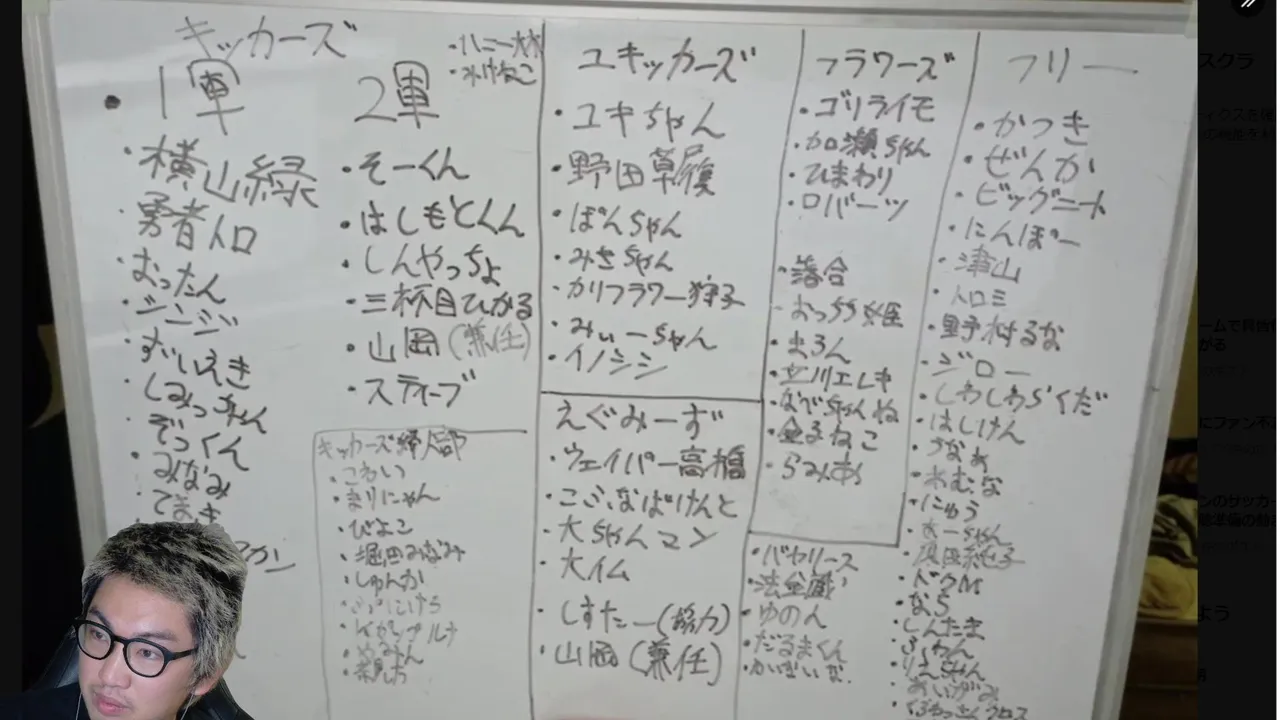 キッカーズ
1軍
・横山緑
・勇者トロ
・おったん
・シンジ
・ずいえき
・しみっちゃん
・ぞっくん
・みなみ
・てまき
2軍
・ハニー大木
・みけねこ
・そーくん
・はしもとくん
・しんやっちょ
・三杯目ひかる
・山岡(兼任)
・スティーブ
キッカーズ婦人部
・こねい
・まりにゃん
・ぴよこ
・堀田みなみ
・しゅんか
ユキッカーズ
・ユキちゃん
・野田草履
・ぽんちゃん
・みさちゃん
・カリフラワー狩子
・みぃーちゃん
・イノシシ
えぐみーず
・ウェイパー高橋
・こふなばけんと
・大ちゃんマン
・大イム
・しすたー(協力)
・山岡(兼任)
フラワーズ
・ゴリライモ
・加瀬ちゃん
・ひまわり
・ロバーツ
・落合
・おっちち姫
・まろん
・立川エレキ
・なべちゃんね
・金子ねこ
・らみあ
・バヤリース
・ゆのん
・だるまくん
フリー
・かつき
・ぜんか
・ビッグニート
・にんぽー
・津山
・トロミ
・野村るな
・ジロー
・しわしわらくだ
・はしけん
・うなぁ
・ねむな
・にゅう
・ドクM
・なら
・しんたま
・ふわん
・りえちゃん
・あいがみ